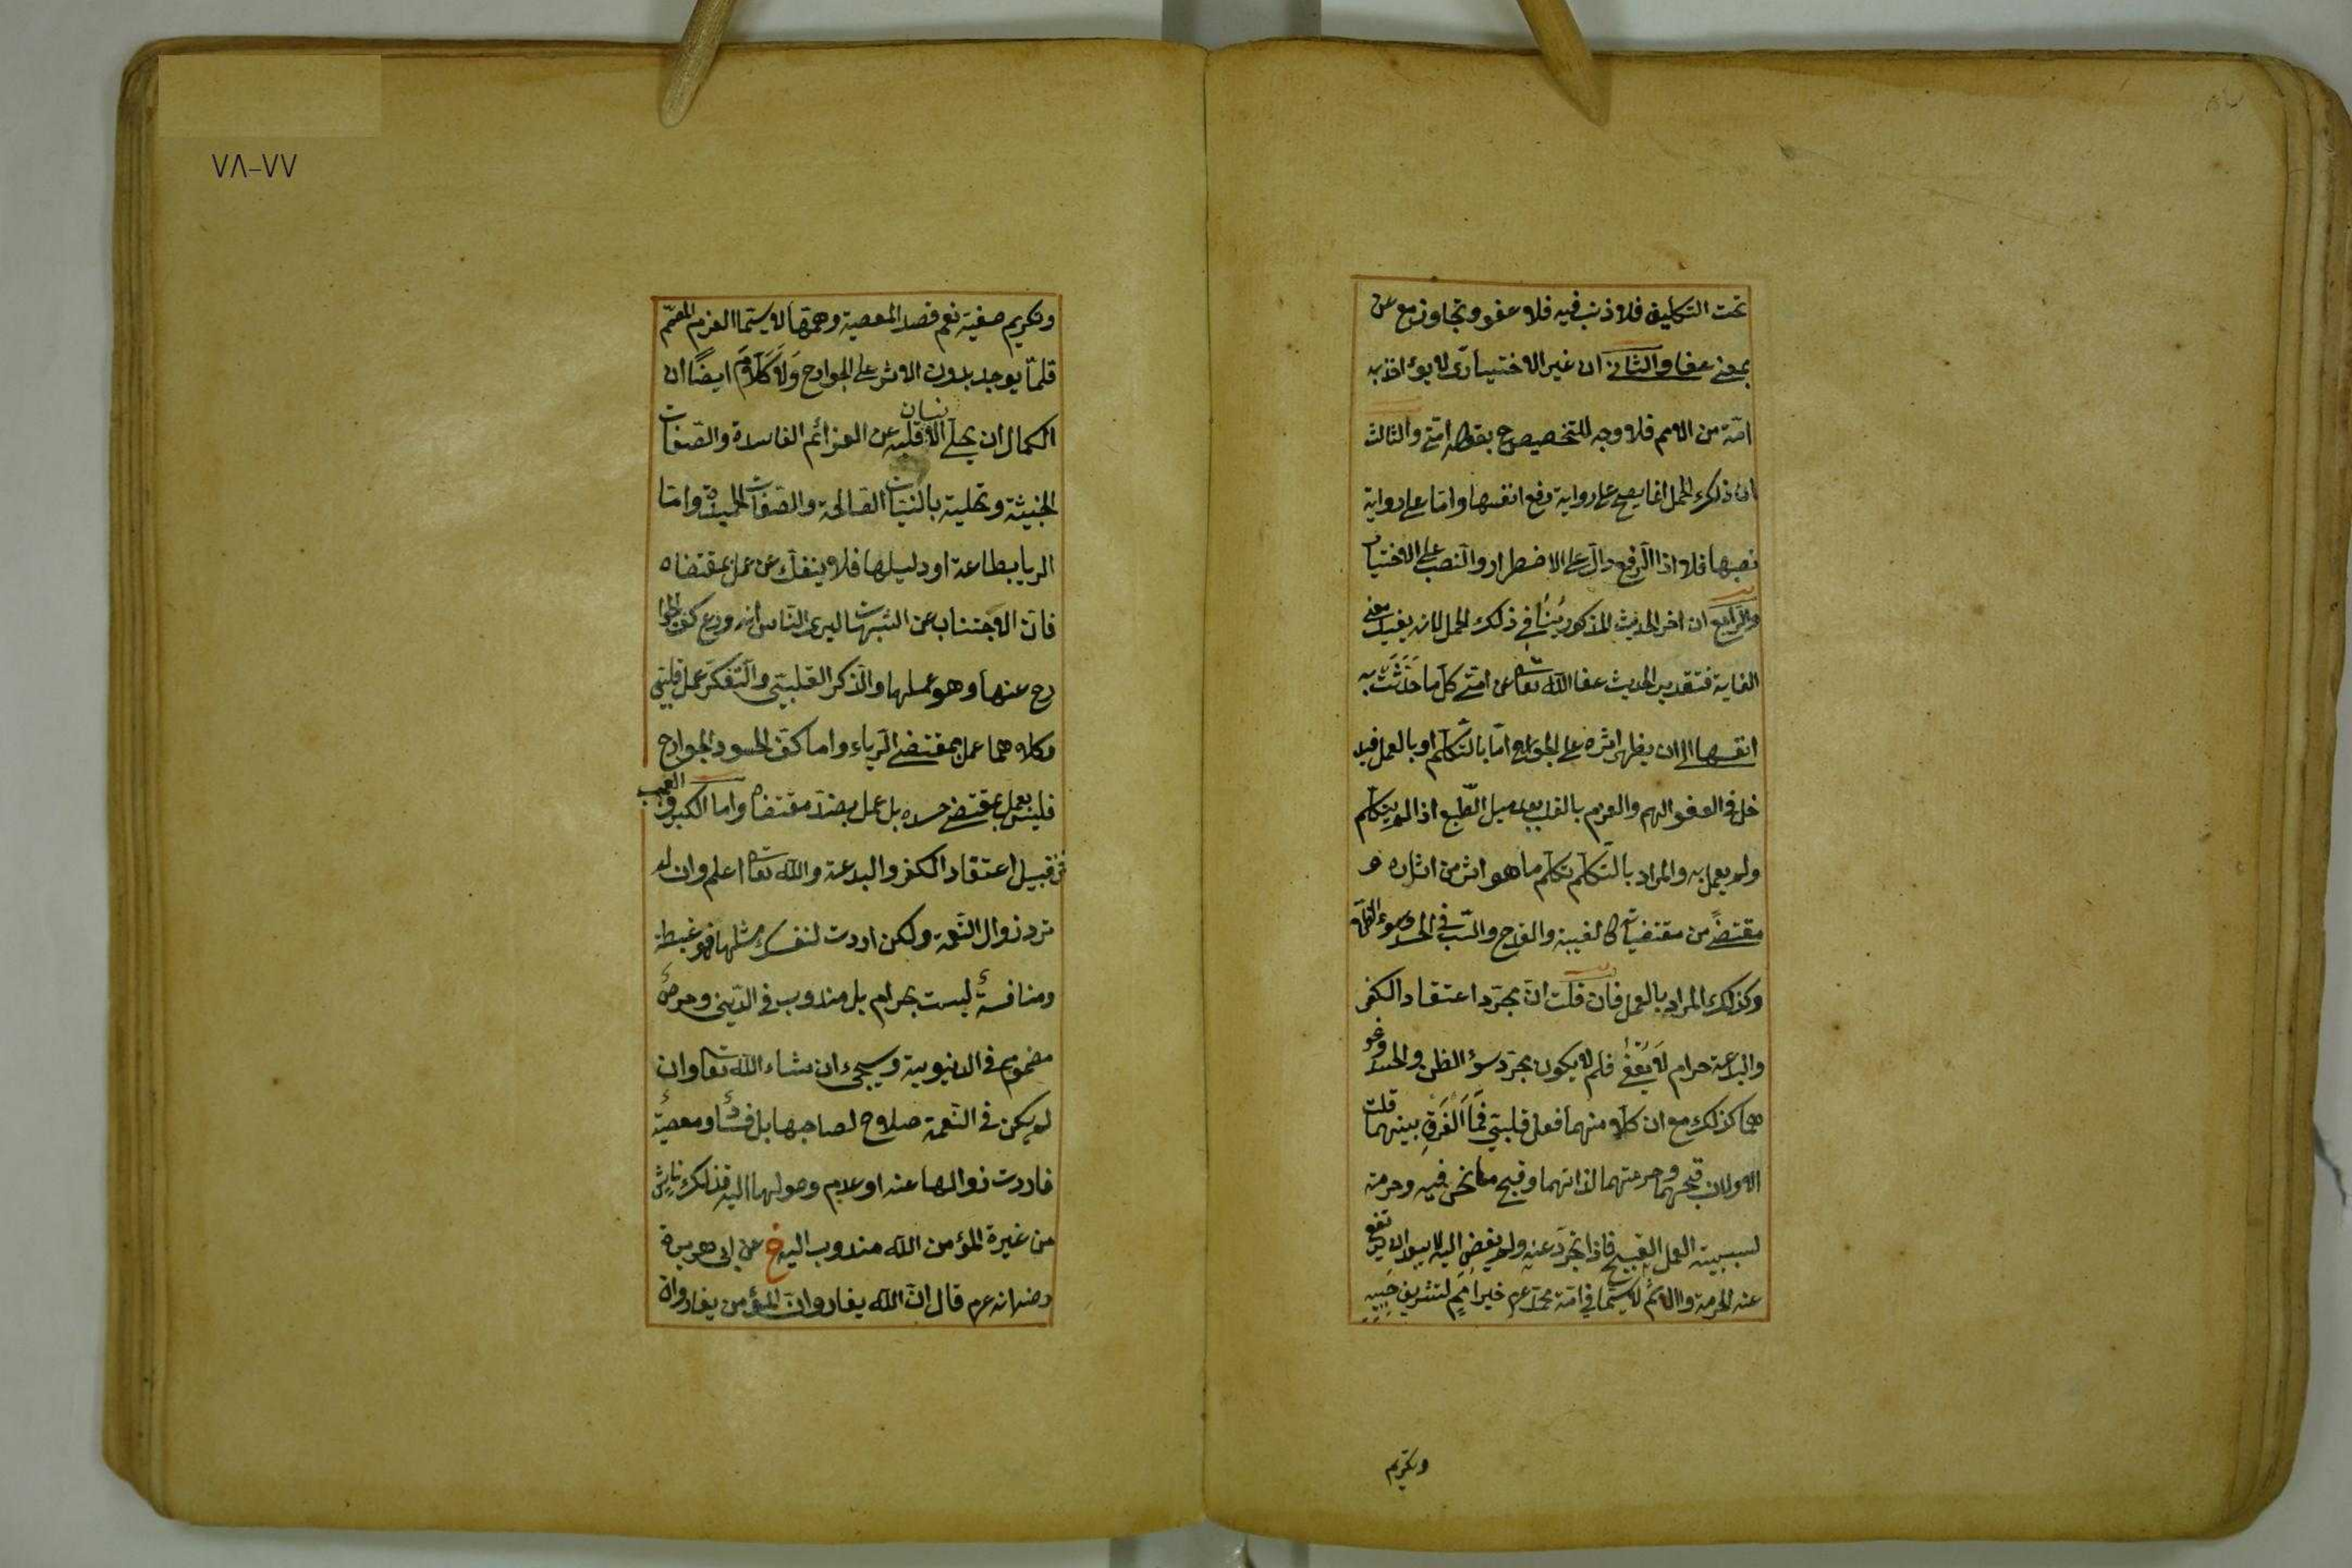 تحت التكليف فلا ذنب فيه فلا عفو وتجاوز مع عن
بمعنى عفا والثانى ان غير الاختيارى لا يؤاخذ به
امة من الامم فلا وجه للتخصيص ح بقوله امتى والثالث
ان ذلك الحمل انما يصح على رواية رفع انفسها واما على رواية
نصبها فلا اذ الرفع دال على الاضطرار والنصب على الاختيار
والرابع ان اخر الحديث المذكور ينافى ذلك الحمل لانه يفيد معنى
الغاية فتقدير الحديث عفا الله تعالى عن امتى كل ما حدثت به
انفسها الى ان يظهر اثره على الجوارح اما بالتكلم او بالعمل فيد
خل فى العفو الهم والعزم بالقلب بعد ميل الطبع اذا لم يتكلم
ولم يعمل به والمراد بالتكلم تكلم ما هو اثر من اثاره و
مقتضى من مقتضياته كالغيبة والقدح والسب فى الحسد وسوء الظن
وكذلك المراد بالعمل فان قلت ان مجرد اعتقاد الكفر
والبدعة حرام لا يعفى فلم لا يكون مجرد سوء الظن والحسد ونحو
هما كذلك مع ان كلا منهما فعل قلبى فما الفرق بينهما قلت
الاولان قبحهما وحرمتهما لذاتهما وقبح ما نحن فيه وحرمته
لسببية العمل القبيح فاذا تجرد عنه ولم يفض اليه لا يبعد ان يرتفع
عنه الحرمة والاثم لا سيما فى امة محمد عم خير امم لتشريف حبيبه
وتكريم
٧٧-٧٨
وتكريم صفيه نعم قصد المعصية وهمها لا سيما العزم المصمم
قلما يوجد بدون الاثر على الجوارح ولا كلام ايضا ان
الكمال ان يخلى الانسان قلبه عن العزائم الفاسدة والصفات
الخبيثة وتحليته بالنيات الصالحة والصفات الحميدة واما
الريا بطاعة او دليلها فلا ينفك عن عمل بمقتضاه
فان الاجتناب عن الشبهات ليرى الناس انه ورع كف الجوا
رح عنها وهو عملها والذكر القلبى والتفكر عمل قلبى
وكلاهما عمل بمقتضى الرياء واما كف الحسود الجوارح
فليس بعمل بمقتضى حسده بل عمل بضد مقتضاه واما الكبر والعجب
فمن قبيل اعتقاد الكفر والبدعة والله تعالى اعلم وان لم
ترد زوال النعمة ولكن اردت لنفسك مثلها فهو غبطة
ومنافسة ليست بحرام بل مندوب فى الدينى وحرص
مذموم فى الدنيوية وسيجىء ان شاء الله تعالى وان
لم يكن فى النعمة صلاح لصاحبها بل فساد ومعصية
فاردت زوالها عنه او عدم وصولها اليه فذلك ناش
من غيرة المؤمن الله مندوب اليه خ عن ابى هريرة
رضى انه عم قال ان الله يغار وان المؤمن يغار وان